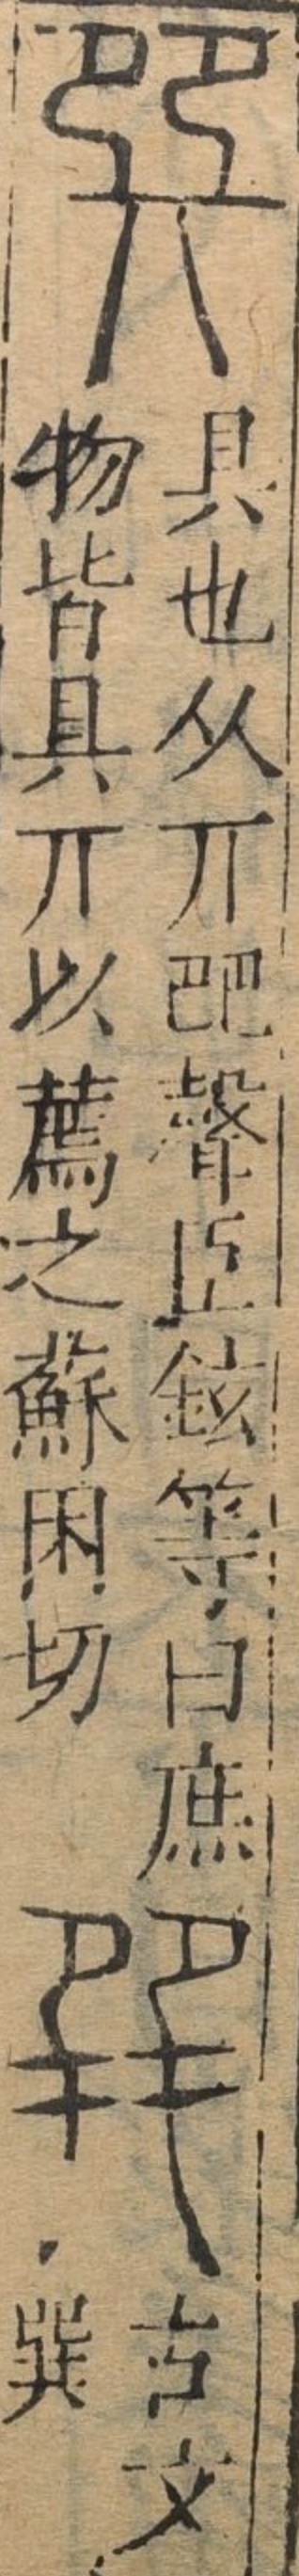 𢁅
具也从丌𢀷聲臣鉉等曰庶
物皆具丌以薦之蘇困切
古文
巽